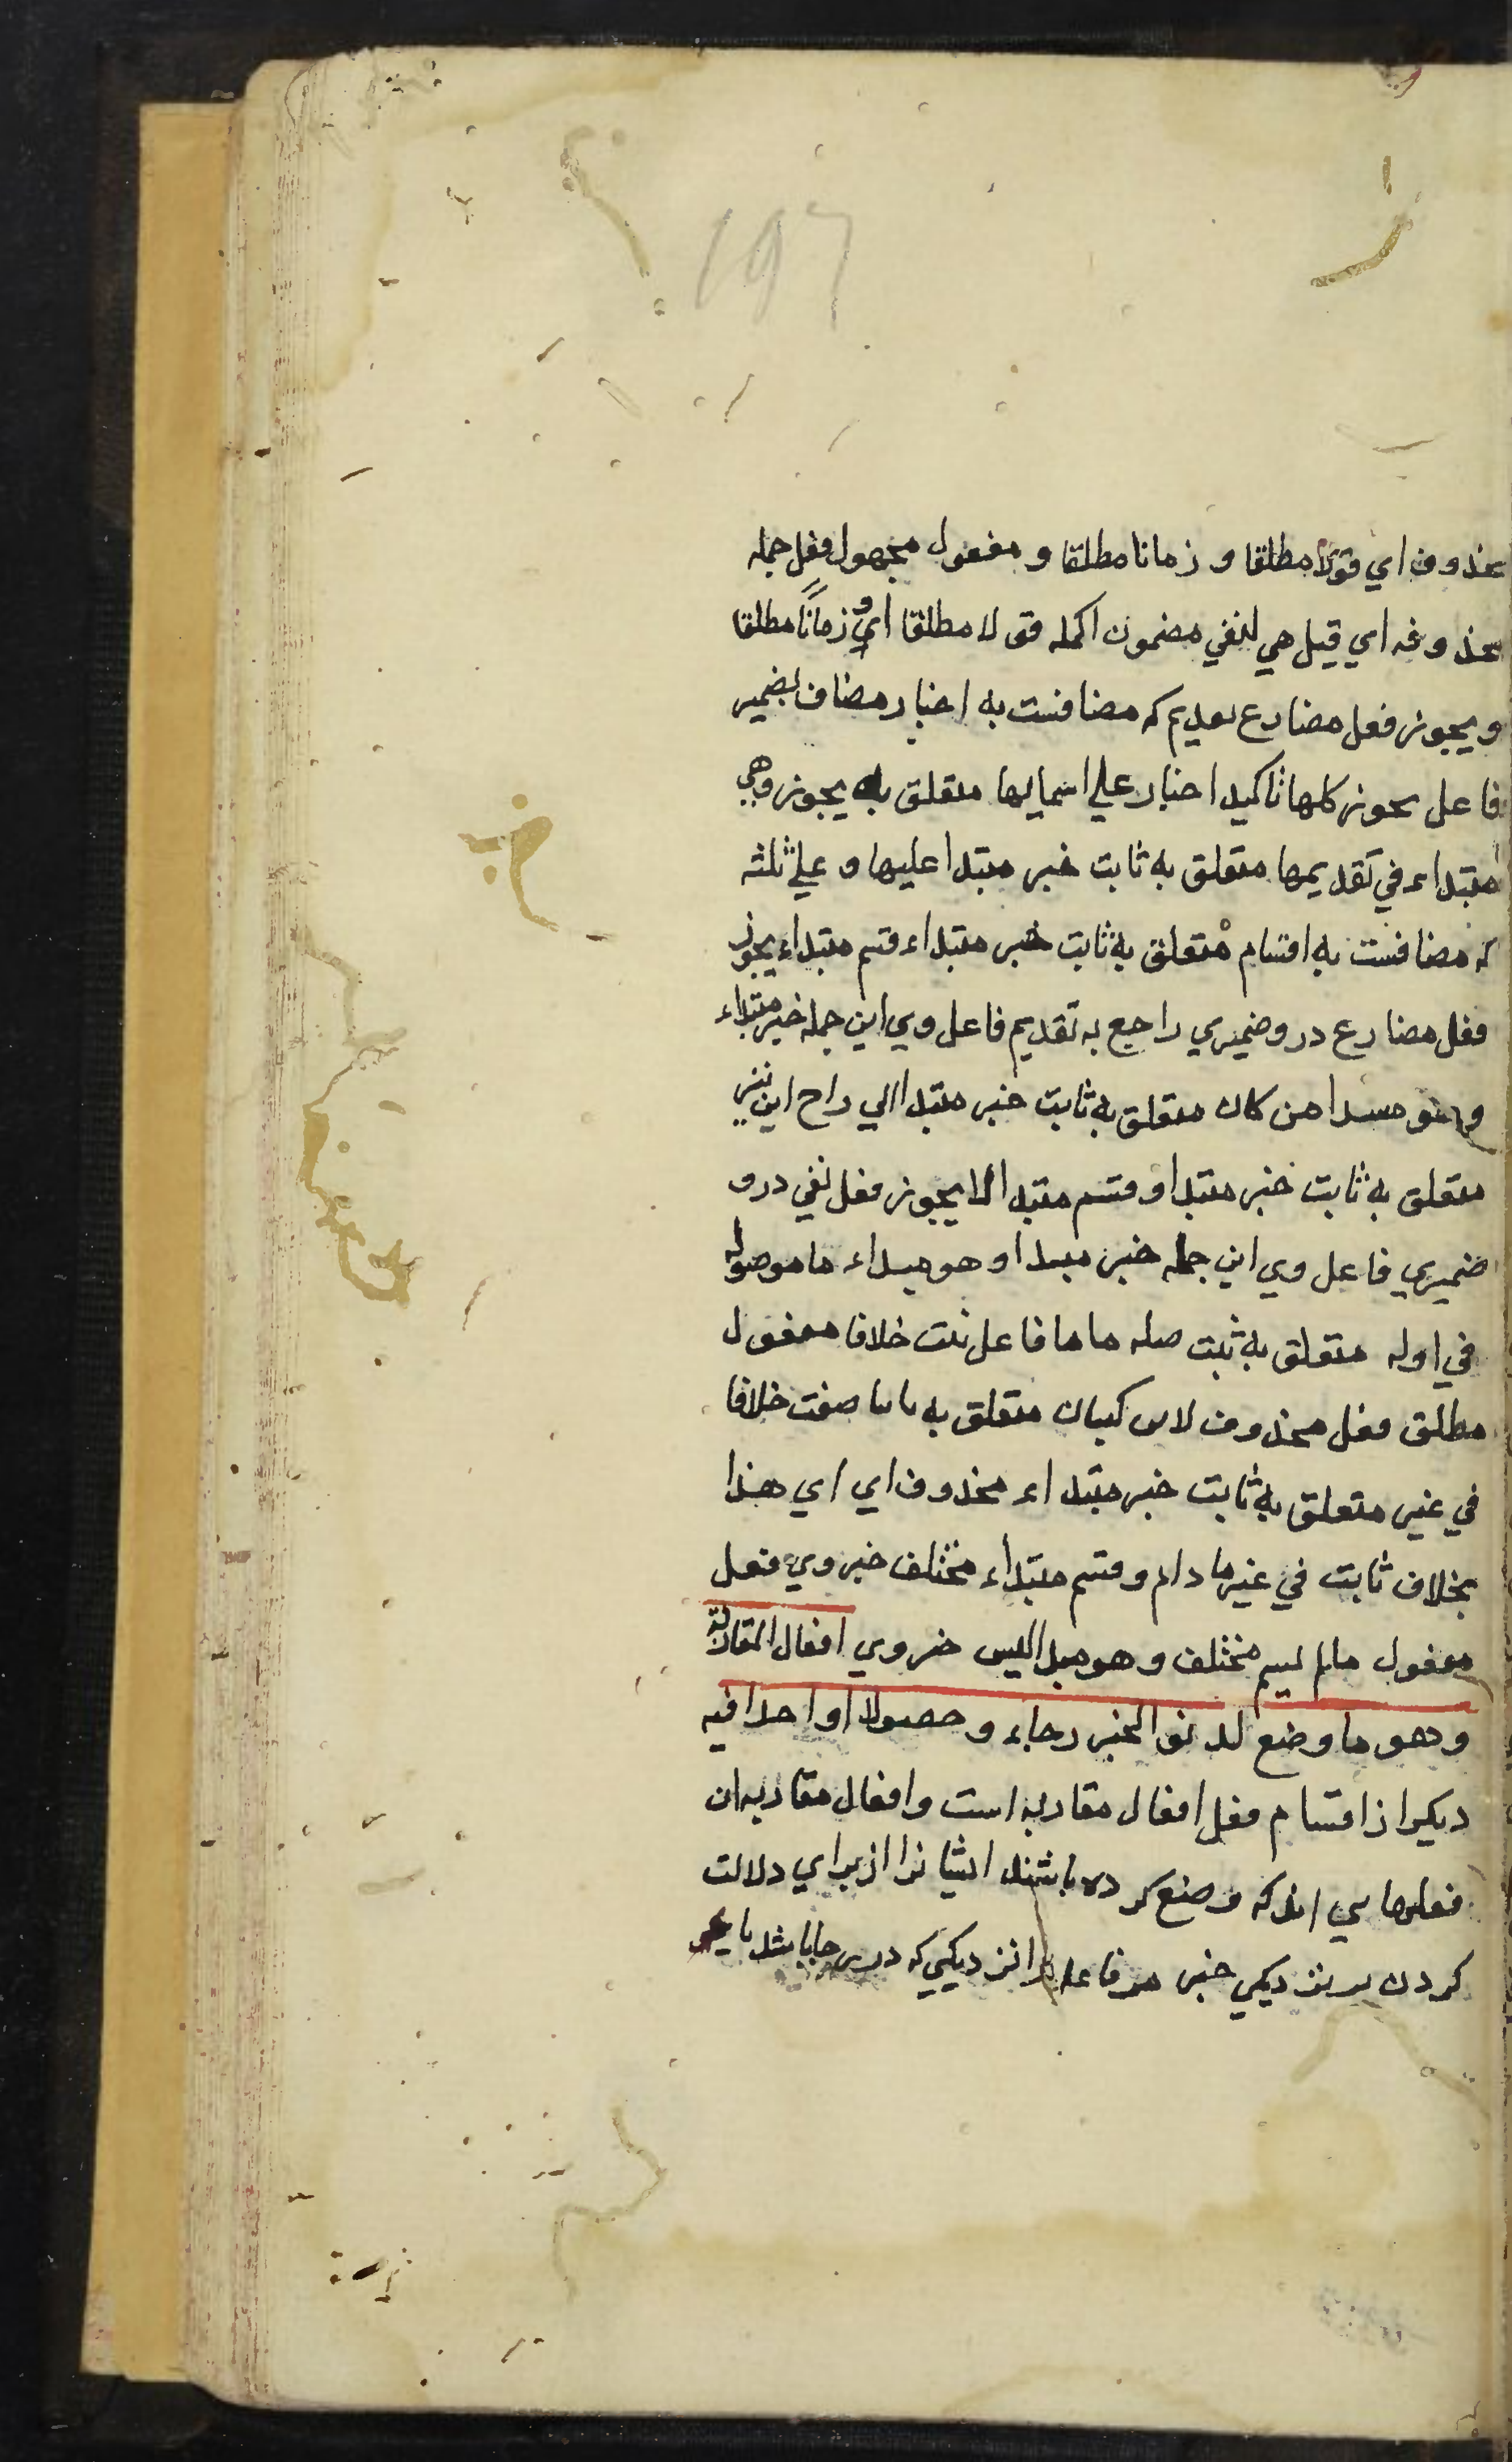 ۱۹۶
محذوف اي قولا مطلقا و زمانا مطلقا و مفعول مجهول فعل جمله
محذوفه اي قيل هي لنفي مضمون الجمله قولا مطلقا اي و زمانًا مطلقا
و يجوز فعل مضارع تقديم كه مضافست به اخبار مضاف بضمير
فاعل يجوز كلها تاكيد اخبار علي اسمايها متعلق به يجوز وهي
مبتداء في تقديمها متعلق به ثابت خبر مبتدا عليها و علي ثلثه
كه مضافست به اقسام متعلق به ثابت خبر مبتداء قسم مبتداء يجوز
فعل مضارع درو ضميري راجع به تقديم فاعل وي اين جمله خبر مبتداء
و هو مبتدا من كان متعلق به ثابت خبر مبتدا الي راح اين نيز
متعلق به ثابت خبر مبتدا و قسم مبتدا لا يجوز فعل نفي درو
ضميري فاعل وي اين جمله خبر مبتدا و هو مبتداء ما موصوله
في اوله متعلق به ثبت صله ما ما فاعل ثبت خلافا مفعول
مطلق فعل محذوف لابن كيسان متعلق به ثابتا صفت خلافا
في غير متعلق به ثابت خبر مبتداء محذوف اي اي هذا
بخلاف ثابت في غير ما دام و قسم مبتداء مختلف خبر وي فعل
مفعول مالم يسم مختلف و هو مبتدا ليس خبر وي افعال المقاربة
و هو ما وضع لدنو الخبر رجاء و حصولا او اخذا فيه
ديكر از اقسام فعل افعال مقاربه است و افعال مقاربه ان
فعلهايي اند كه وضع كرده باشند ايشانرا از براي دلالت
كردن بر نزديكي خبر مر فاعل را نزديكيي كه درين جا باشد يا